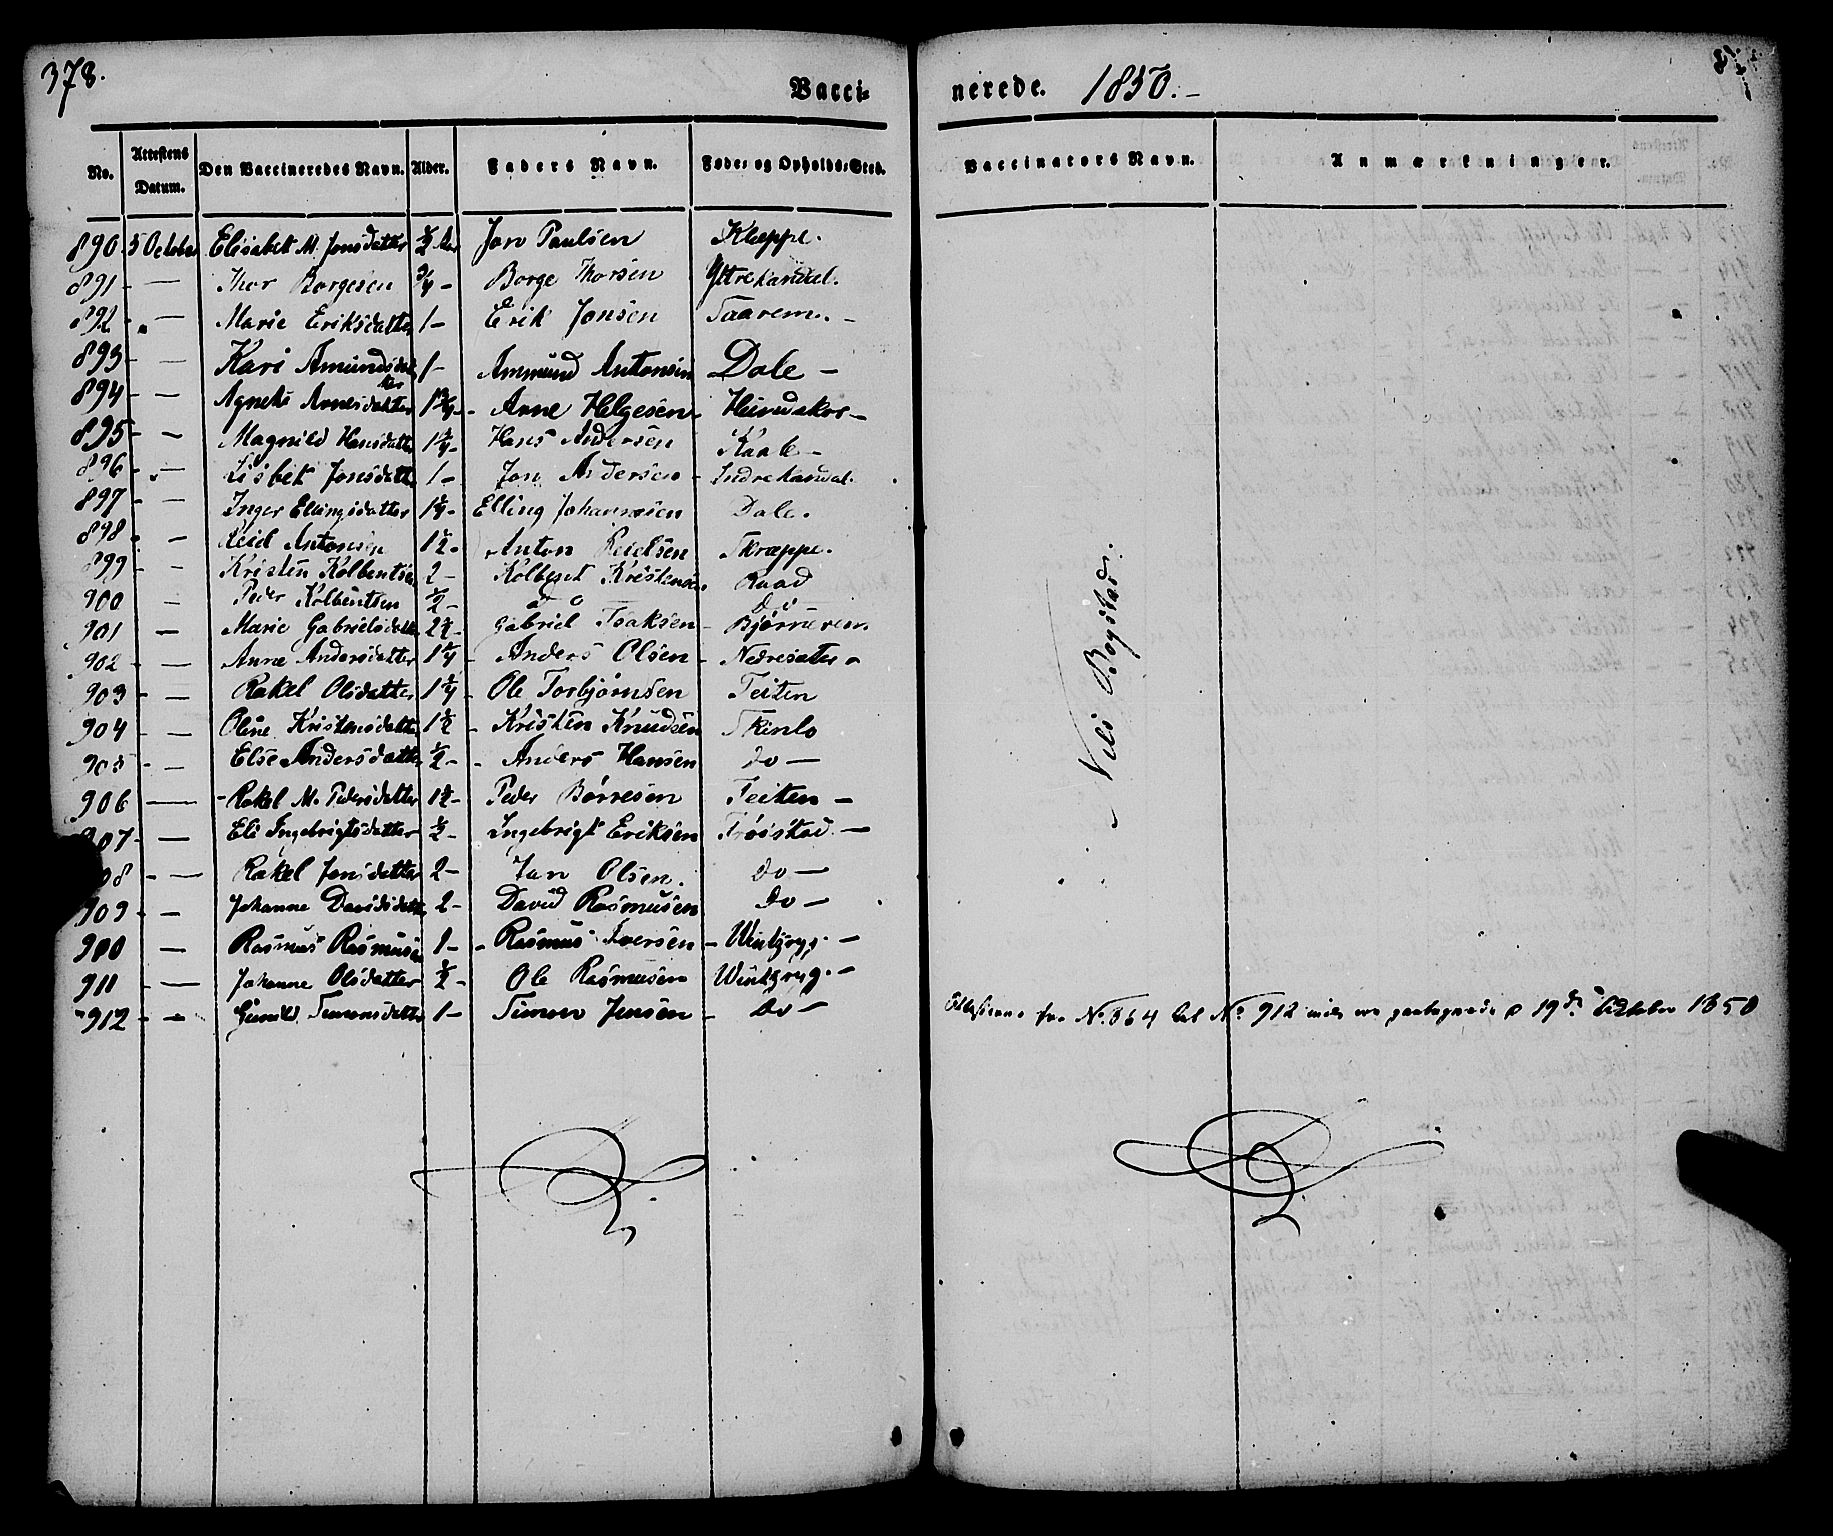 378.
Vacci-
nerede. 1850.-
No. Attestens Datum. Den Vaccineredes Navn. Alder. Faders Navn. Føde- og Opholds-Sted. Vaccinators Navn. Anmærkninger.
890 5 October Elisabet M. Jonsdatter ½ Aar Jon Paulsen Klæppe.
891 - — Thor Borgesen ¾ - Borge Thorsen Yttrekandal.
892 - — Marie Eriksdatter 1 - Erik Jonsen Taarem. -
893 - — Kari Amundsdatter 1 - Ammund Antonsen Dole -
894 - — Agnete Arnesdatter 1¾ - Arne Helgesen -
895 - — Magnild Hansdatter 1¼ - Hans Andersen Kaale -
896 - — Lisbet Jonsdatter 1 - Jon Andersen - Indrekandal.
897 - — Inger Ellingsdatter 1¼ - Elling Johannesen Dale.
898 - — Reiel Antonsen 1½ - Anton Reielsen Skræppe.
899 - — Kristen Kolbentsen 2 - Kristensen Raad
900 — Peder Kolbentsen ½ - do do
901 — Marie Gabrielsdatter 2½ - Gabriel Isaksen - Bjørnerem.
902 - — Anne Andersdatter 1¼ - Anders Olsen - Nedresæter -
903 - — Rakel Olsdatter 1¼ - Ole Torbjørnsen Feiten
904 - — Oline Kristensdatter 1½ - Kristen Knudsen Skinlo
905 - — Else Andersdatter ½ - Anders Hansen do —
906 — - Rakel M. Pedersdatter 1½ - Peder Børresen Feiten -
907 - — Eli Ingebrigtsdatter ½ - Ingebrigt Eriksen Frøistad. -
08 - — Rakel Jonsdatter 2 - Jon Olsen. do —
909 - — Johanne Davidsdatter 2 - David Rasmusen do -
910 — Rasmus Rasmusen 1 - Rasmus Iversen -
911 - — Johanne Olsdatter ½ - Ole Rasmusen
912 - - Gunild Simonsdatter 1 - Simon Jensen - do -
Nils Bogstad.
No. 864 til No. 912 19de October 1850